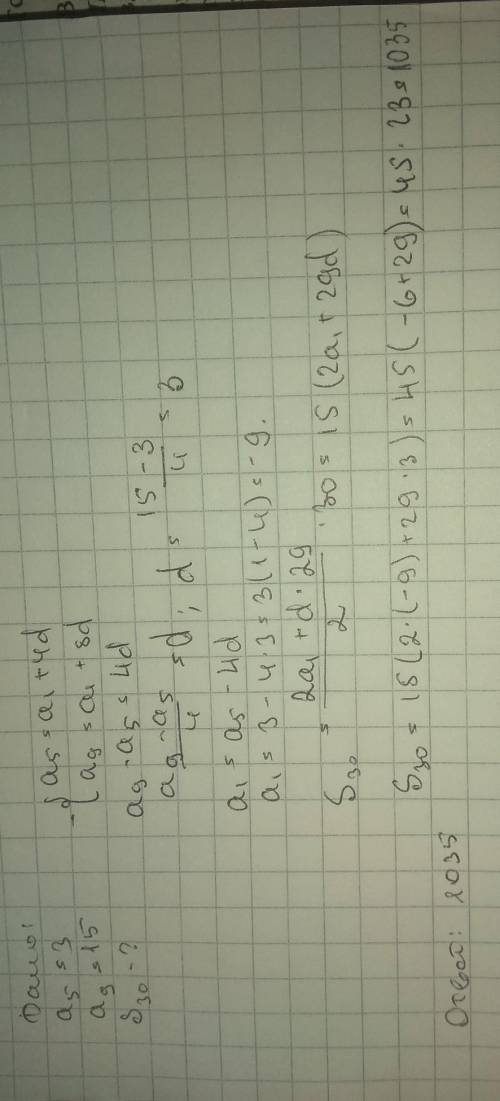 Дано:
a₅ = 3
a₉ = 15
S₃₀ - ?
-{ a₅ = a₁ + 4d
a₉ = a₁ + 8d
a₉ - a₅ = 4d
(a₉ - a₅)/4 = d; d = (15 - 3)/4 = 3
a₁ = a₅ - 4d
a₁ = 3 - 4·3 = 3(1 - 4) = -9.
S₃₀ = (2a₁ + d·29)/2 · 30 = 15(2a₁ + 29d)
S₃₀ = 15(2·(-9) + 29·3) = 45(-6 + 29) = 45·23 = 1035
Ответ: 1035